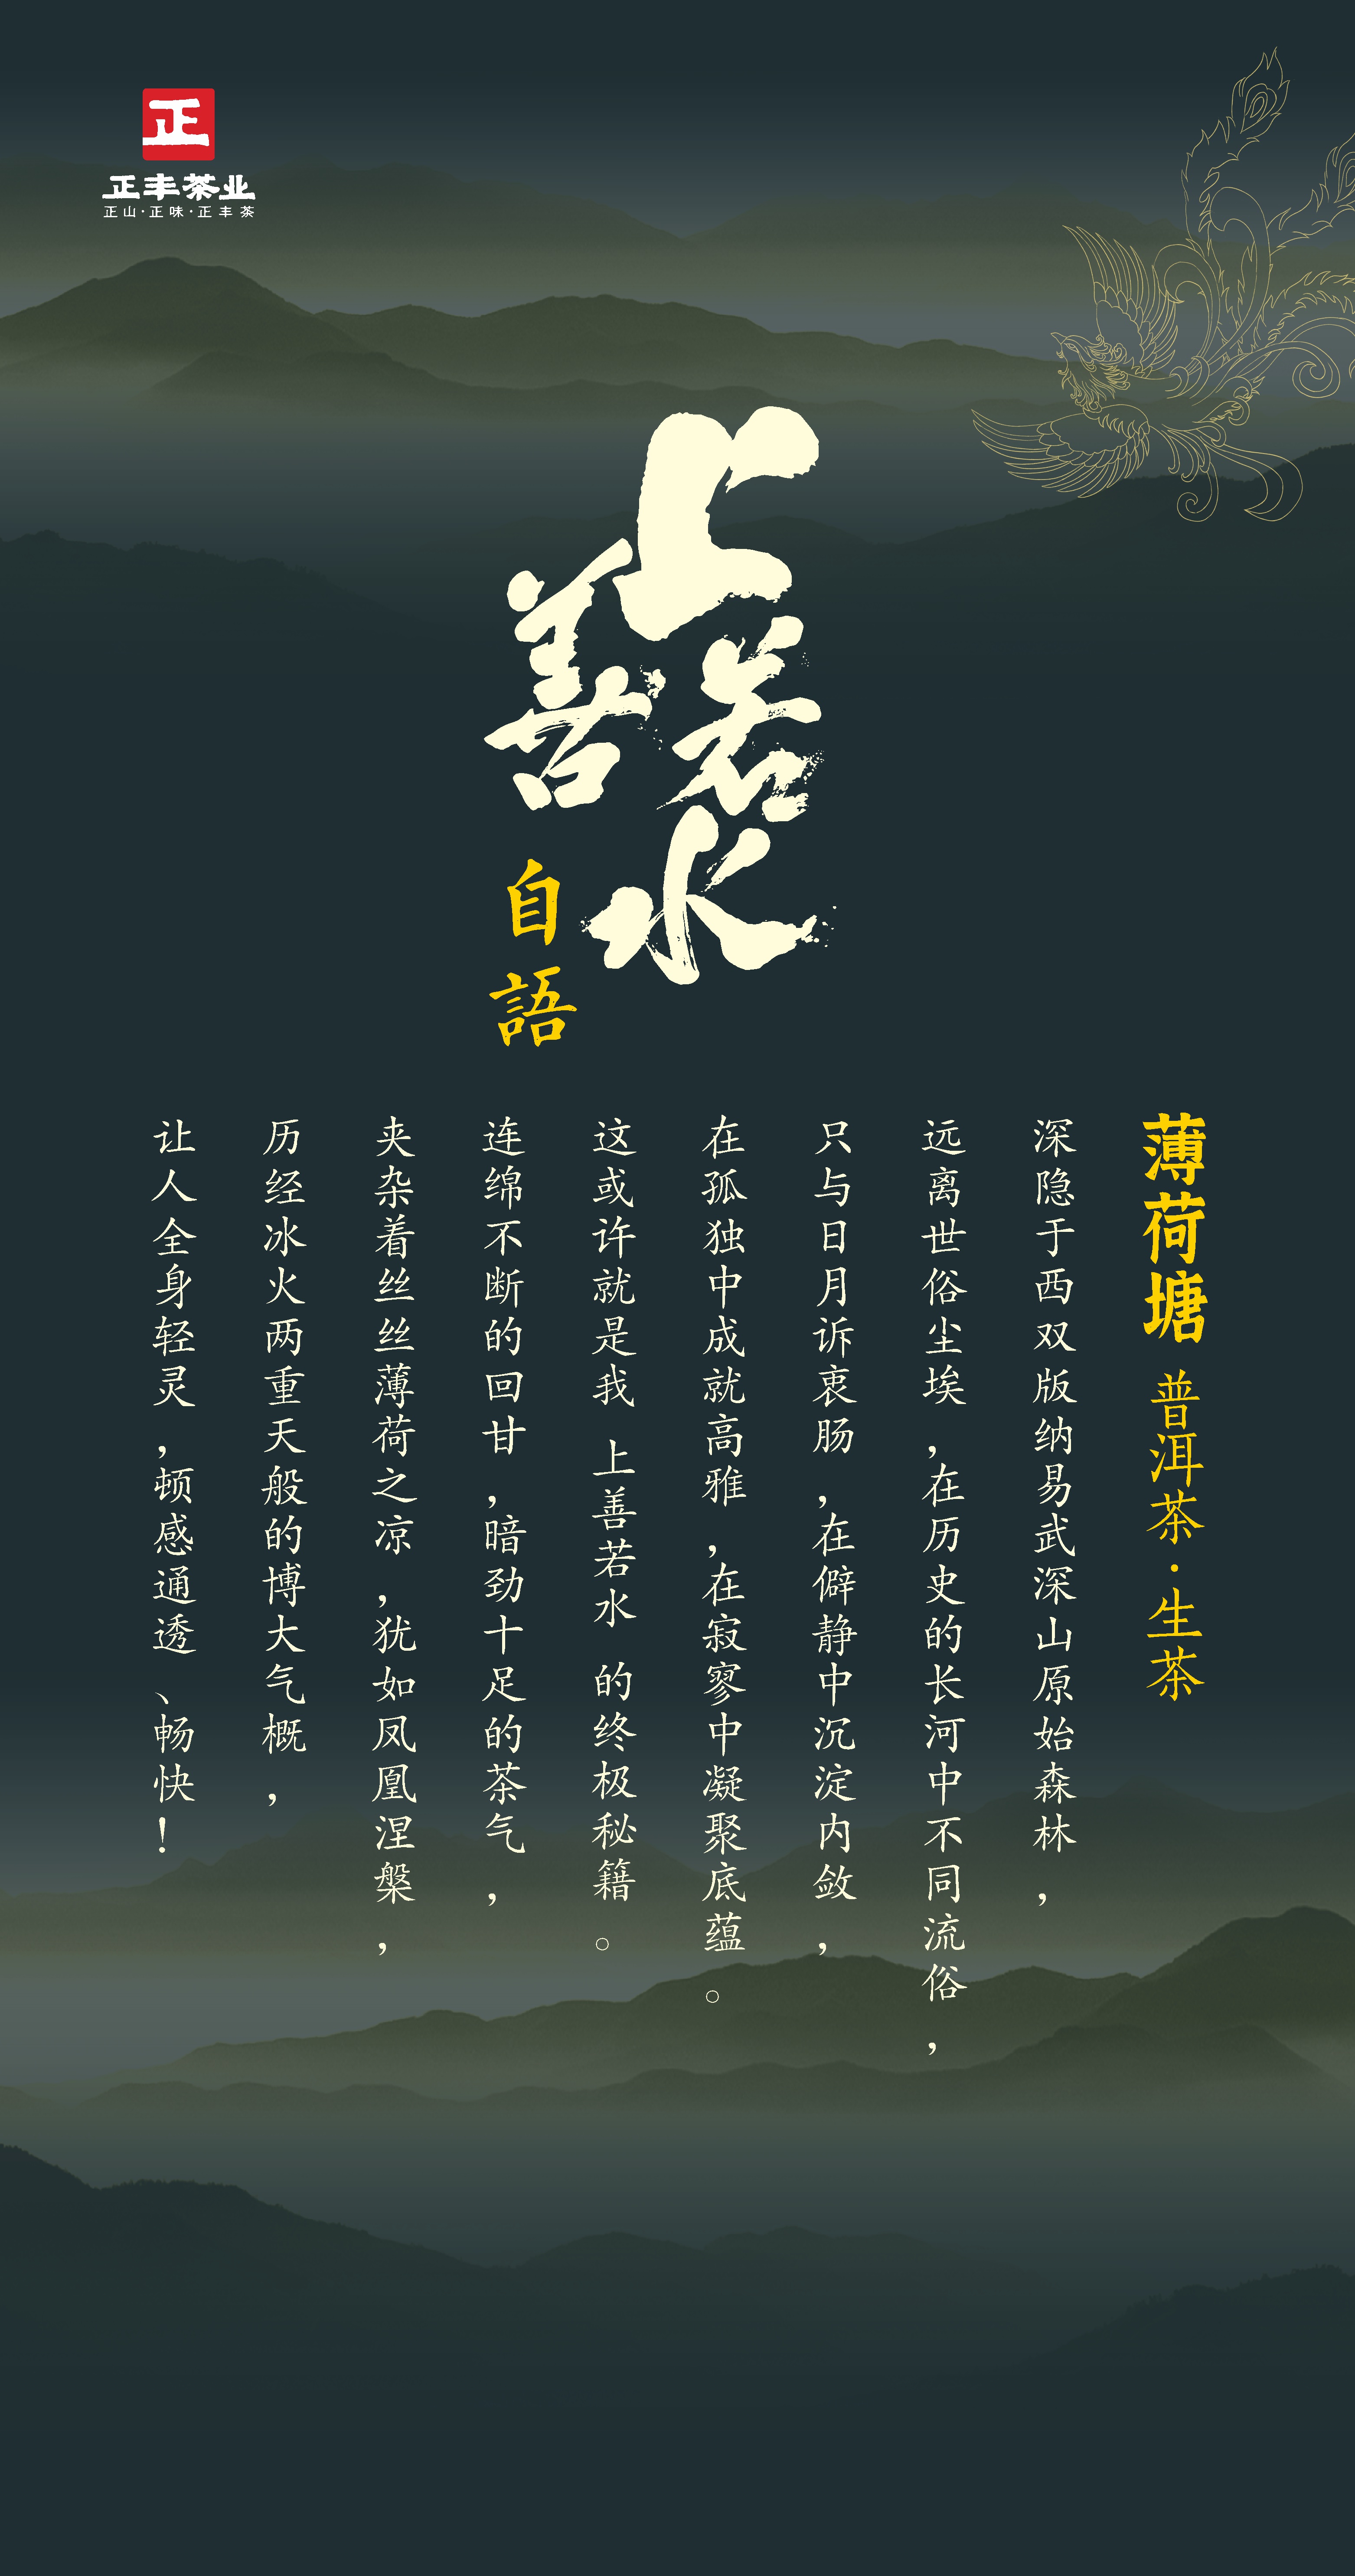 正
正丰茶业
正山·正味·正丰茶
上善若水
自語
薄荷塘 普洱茶·生茶
深隐于西双版纳易武深山原始森林，
远离世俗尘埃，在历史的长河中不同流俗，
只与日月诉衷肠，在僻静中沉淀内敛，
在孤独中成就高雅，在寂寥中凝聚底蕴。
这或许就是我 上善若水 的终极秘籍。
连绵不断的回甘，暗劲十足的茶气，
夹杂着丝丝薄荷之凉，犹如凤凰涅槃，
历经冰火两重天般的博大气概，
让人全身轻灵，顿感通透、畅快！